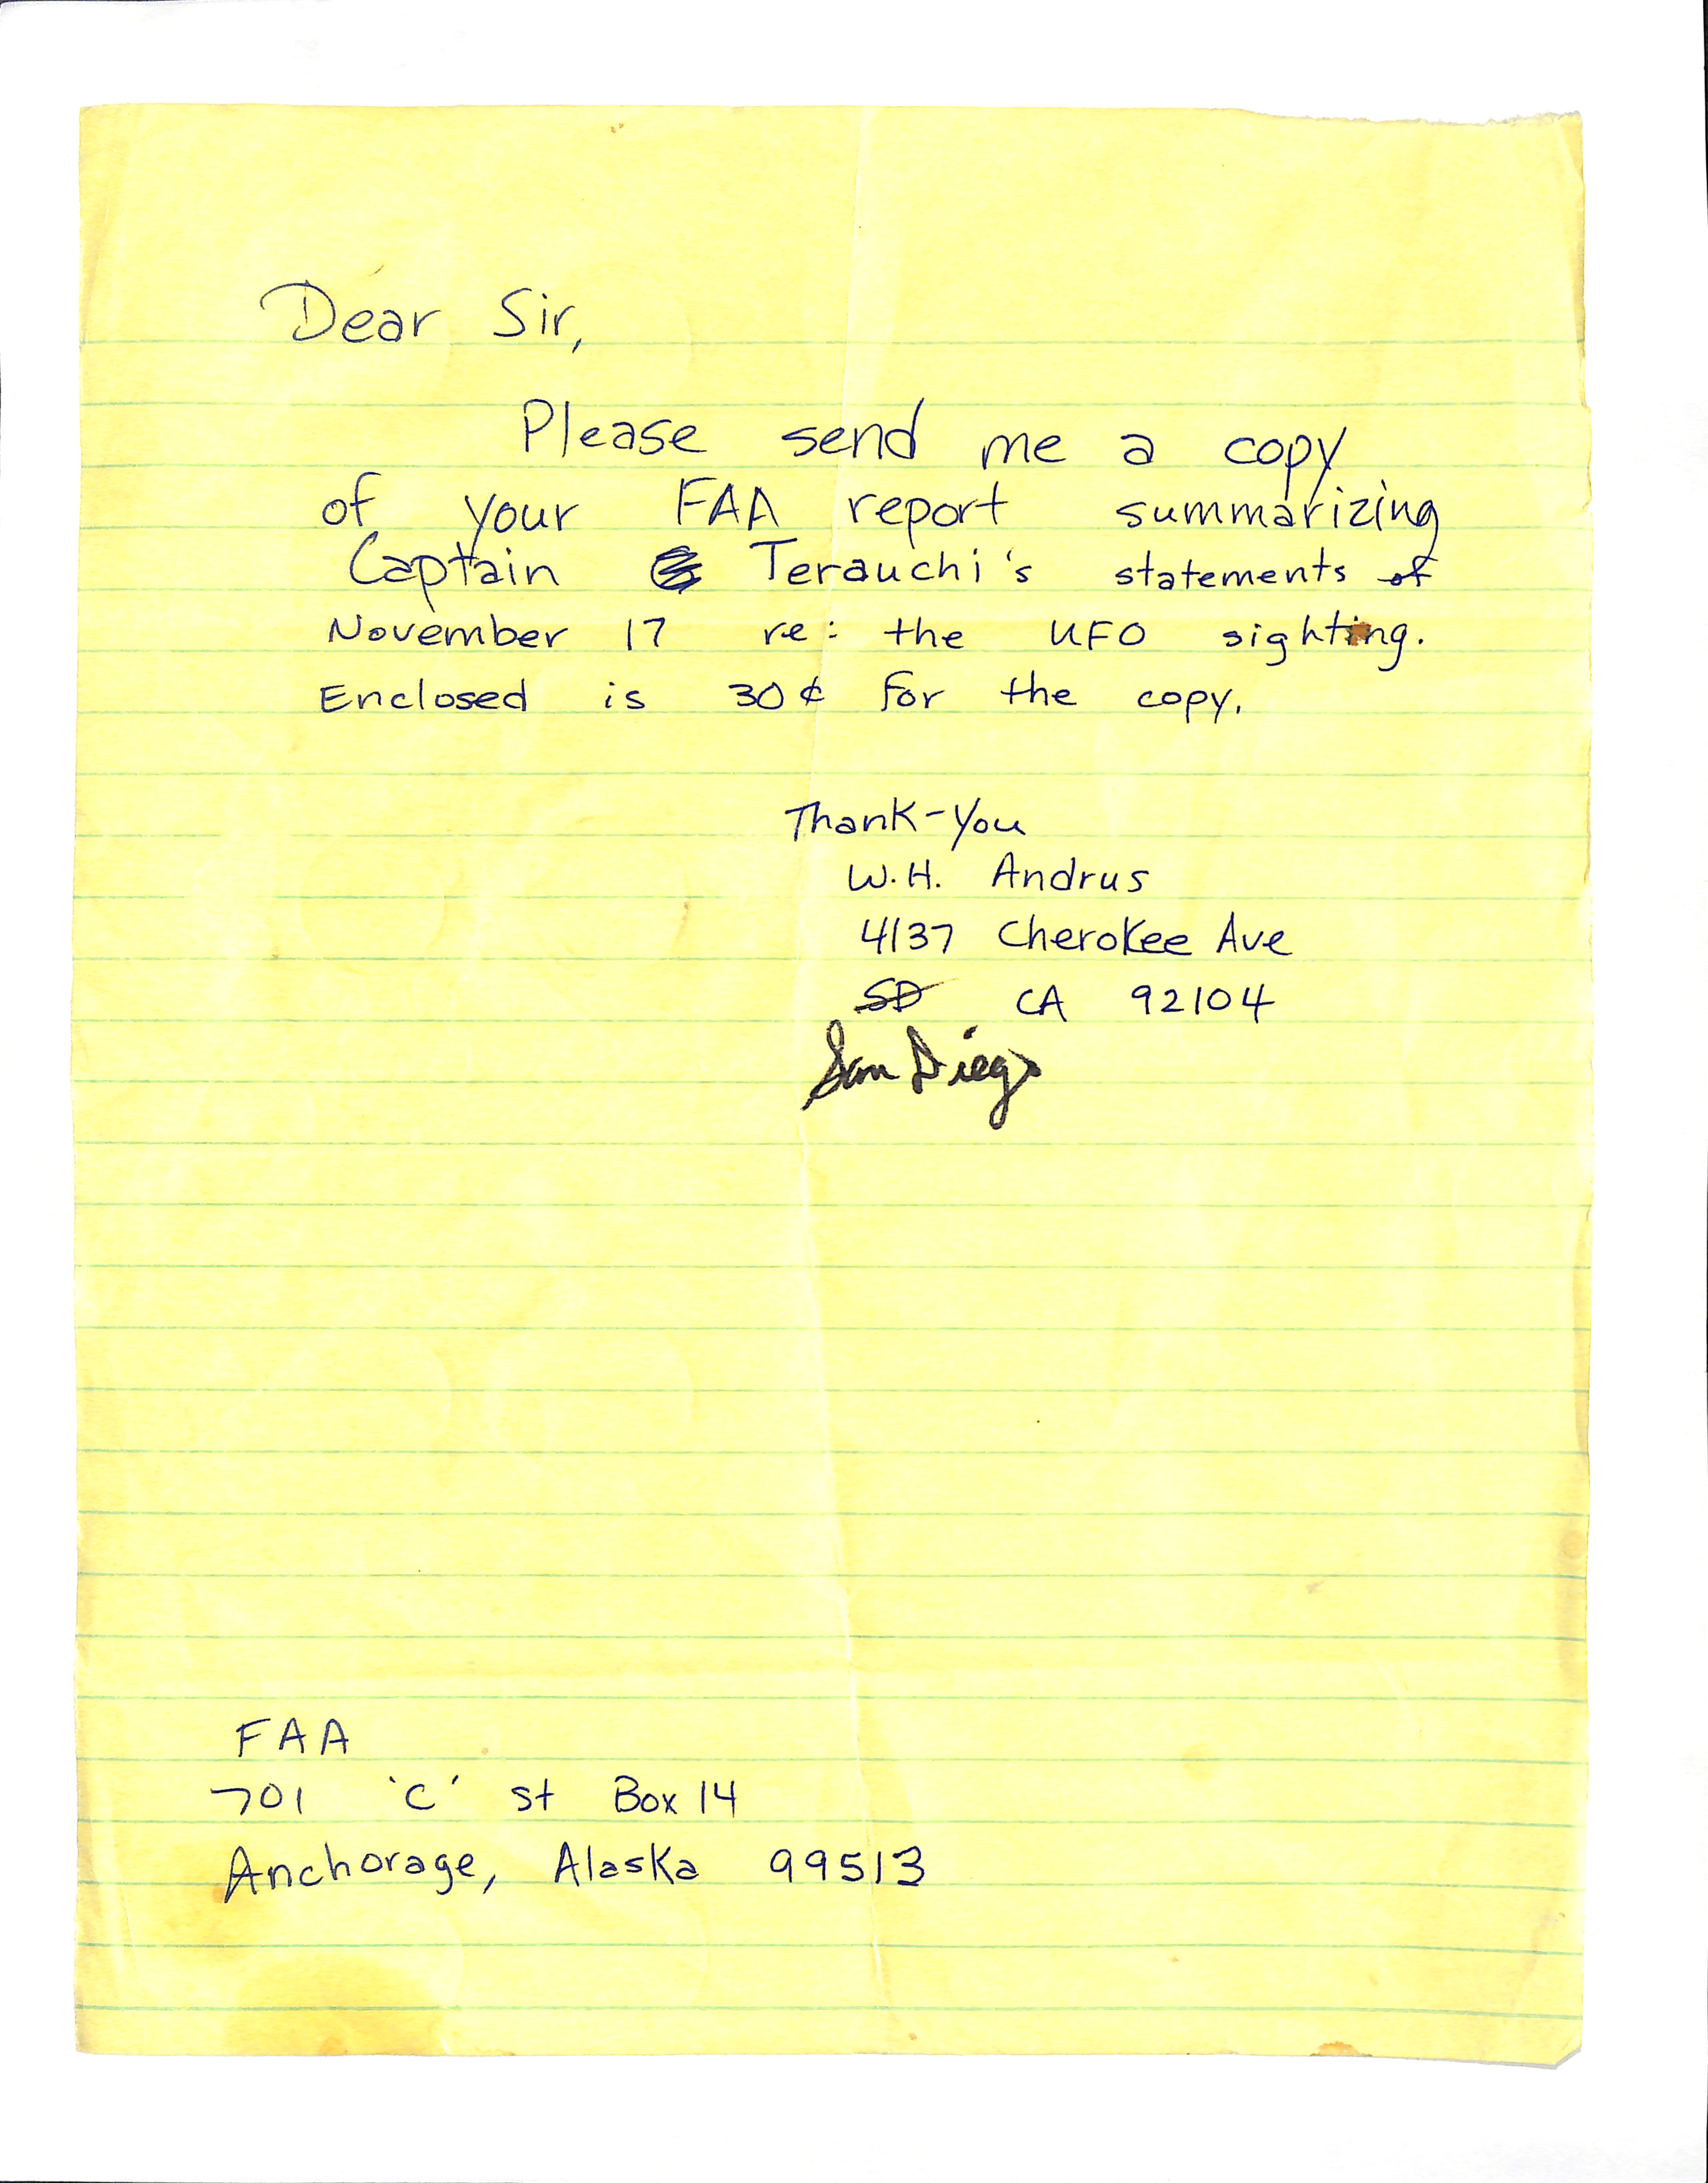 Dear Sir,
Please send me a copy
of your FAA report summarizing
Captain Terauchi's statements of
November 17 re: the UFO sighting.
Enclosed is 30¢ for the copy.
Thank-You
W.H. Andrus
4137 Cherokee Ave
SD CA 92104
San Diego
FAA
701 'C' St Box 14
Anchorage, Alaska 99513